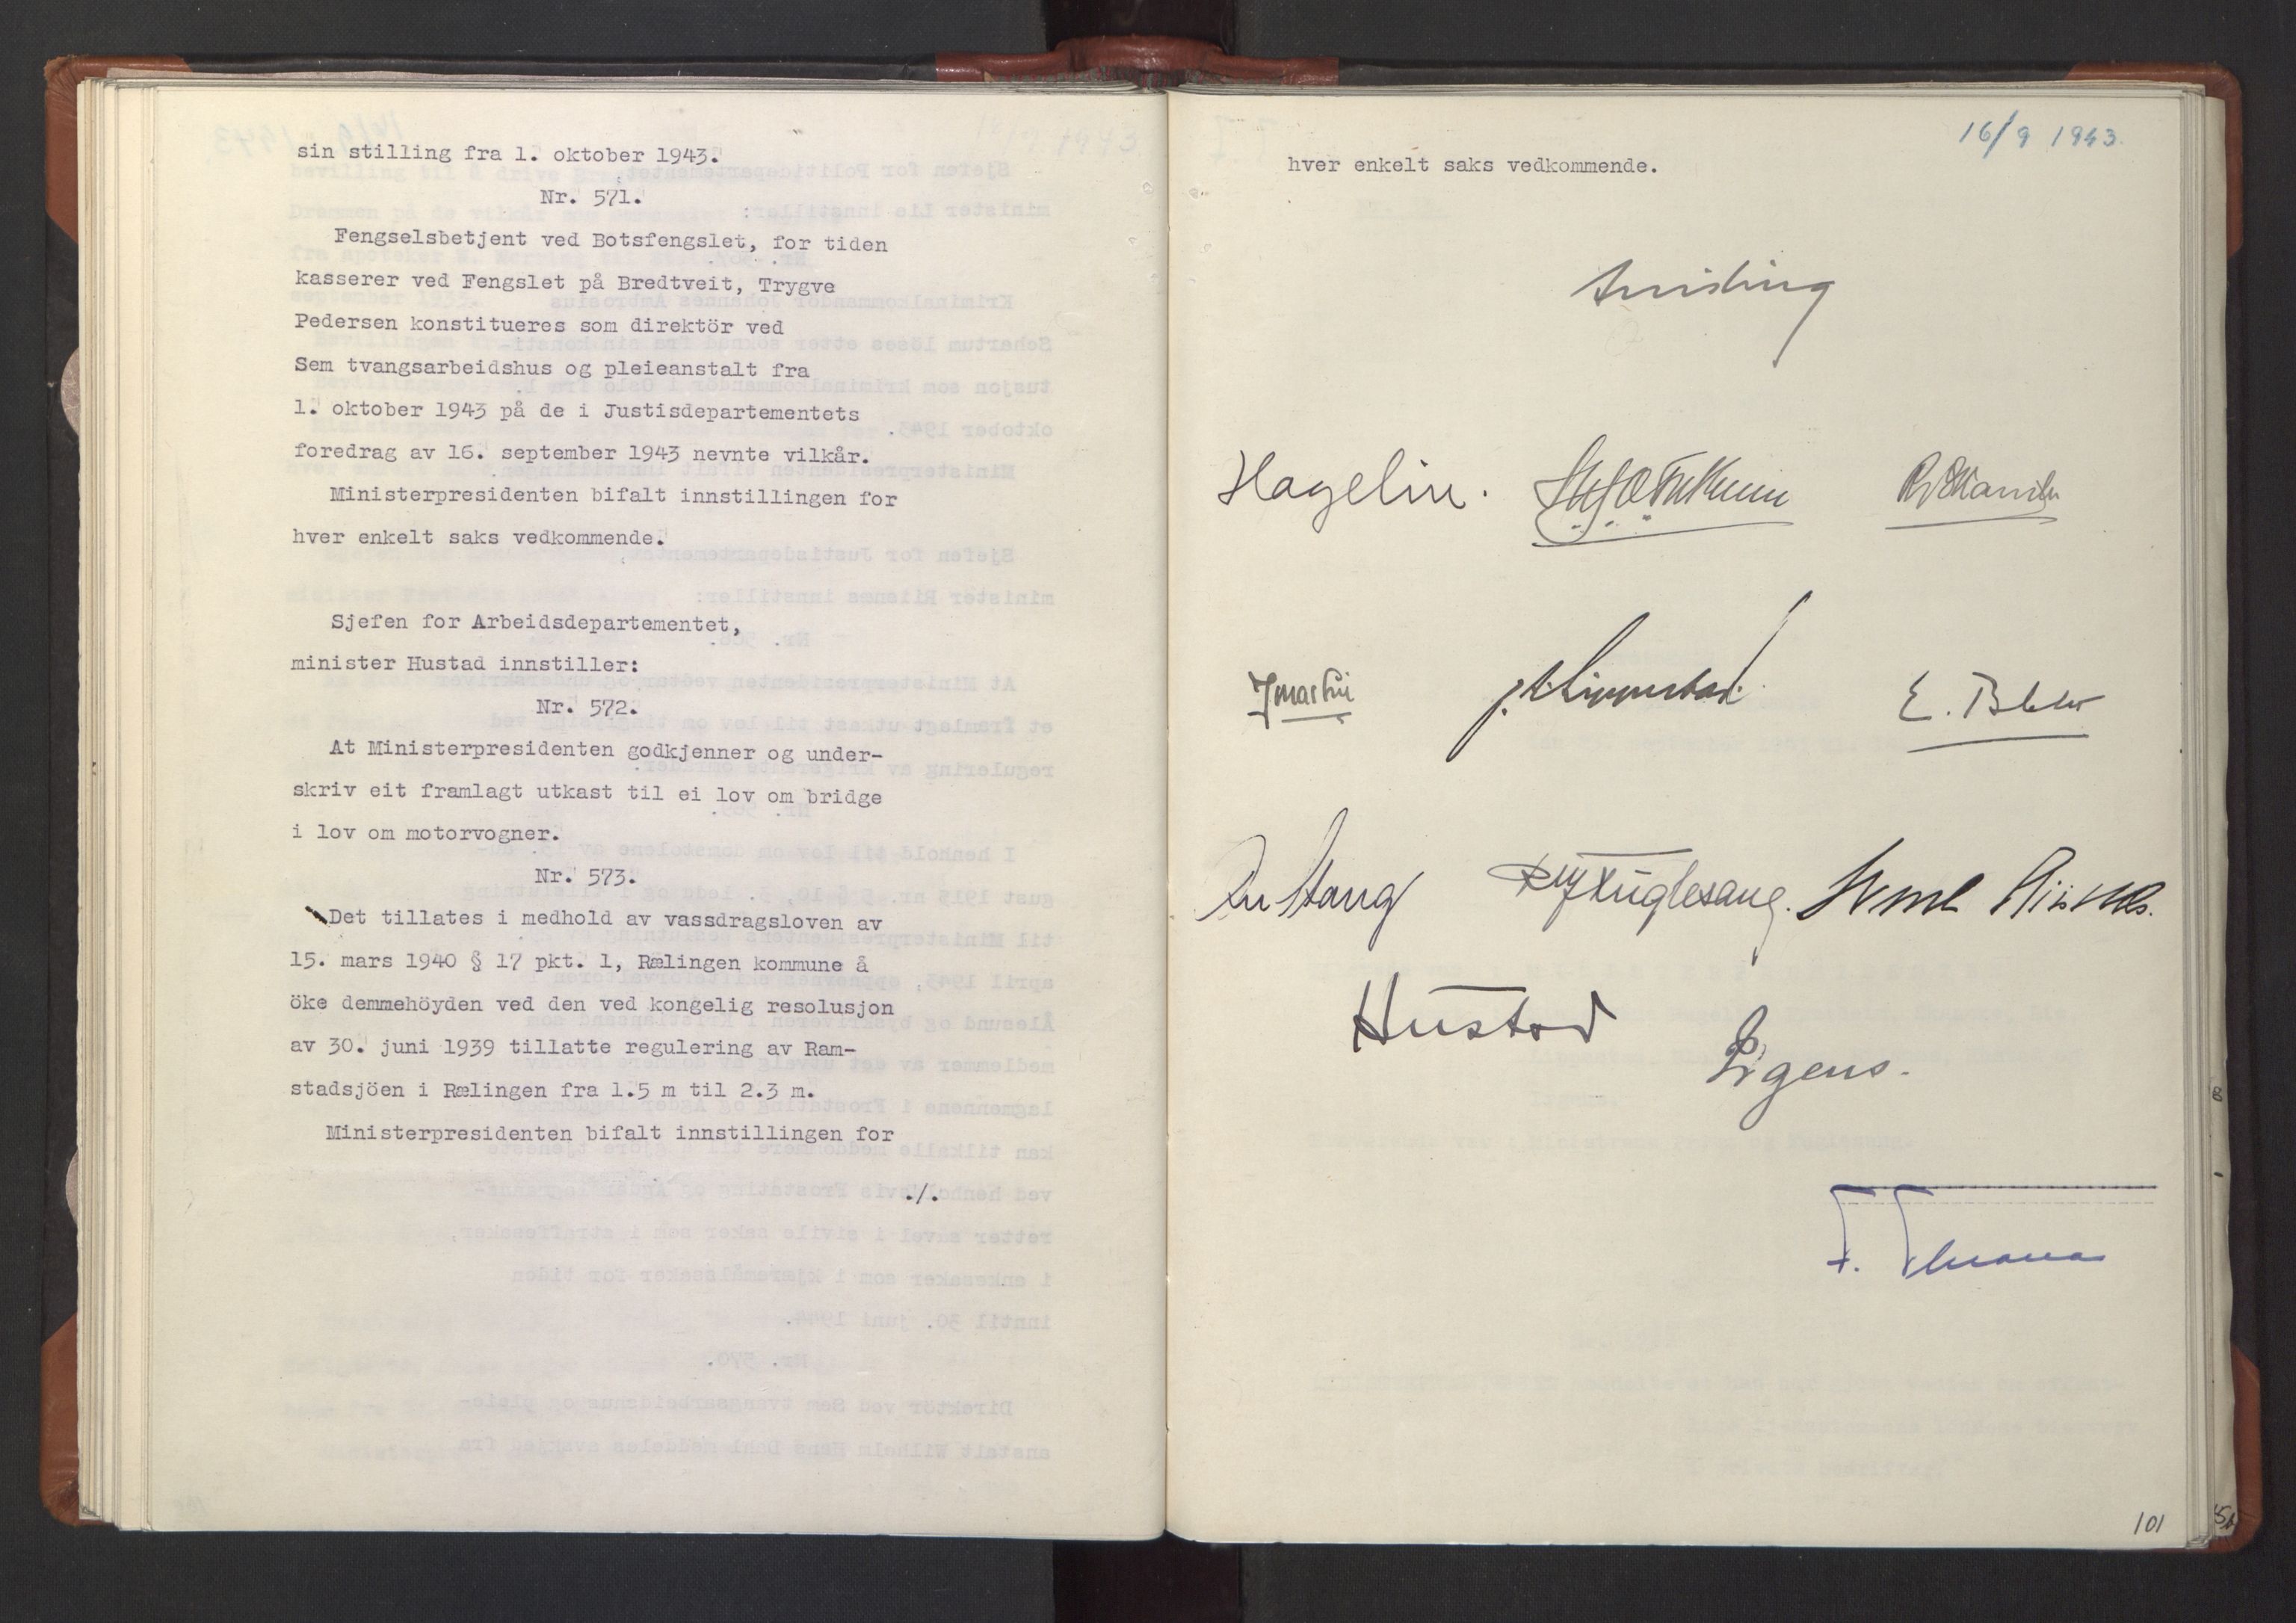 sin stilling fra 1. oktober 1943.
Nr. 571.
Fengselsbetjent ved Botsfengslet, for tiden
kasserer ved Fengslet på Bredtveit, Trygve
Pedersen konstitueres som direktör ved
Sem tvangsarbeidshus og pleieanstalt fra
1. oktober 1943 på de i Justisdepartementets
foredrag av 16. september 1943 nevnte vilkår.
Ministerpresidenten bifalt innstillingen for
hver enkelt saks vedkommende.
Sjefen for Arbeidsdepartementet,
minister Hustad innstiller:
Nr. 572.
At Ministerpresidenten godkjenner og under-
skriv eit framlagt utkast til ei lov om bridge
i lov om motorvogner.
Nr. 573.
Det tillates i medhold av vassdragsloven av
15. mars 1940 § 17 pkt. 1, Rælingen kommune å
öke demmehöyden ved den ved kongelig resolusjon
av 30. juni 1939 tillatte regulering av Ram-
stadsjöen i Rælingen fra 1.5 m til 2.3 m.
Ministerpresidenten bifalt innstillingen for
./.
16/9 1943.
hver enkelt saks vedkommende.
Quisling
Hagelin.
R J Skancke
J. Lippestad.
Ax Stang
Rolf Fuglesang.
Sverre Riisnæs.
Hustad
Irgens.
101